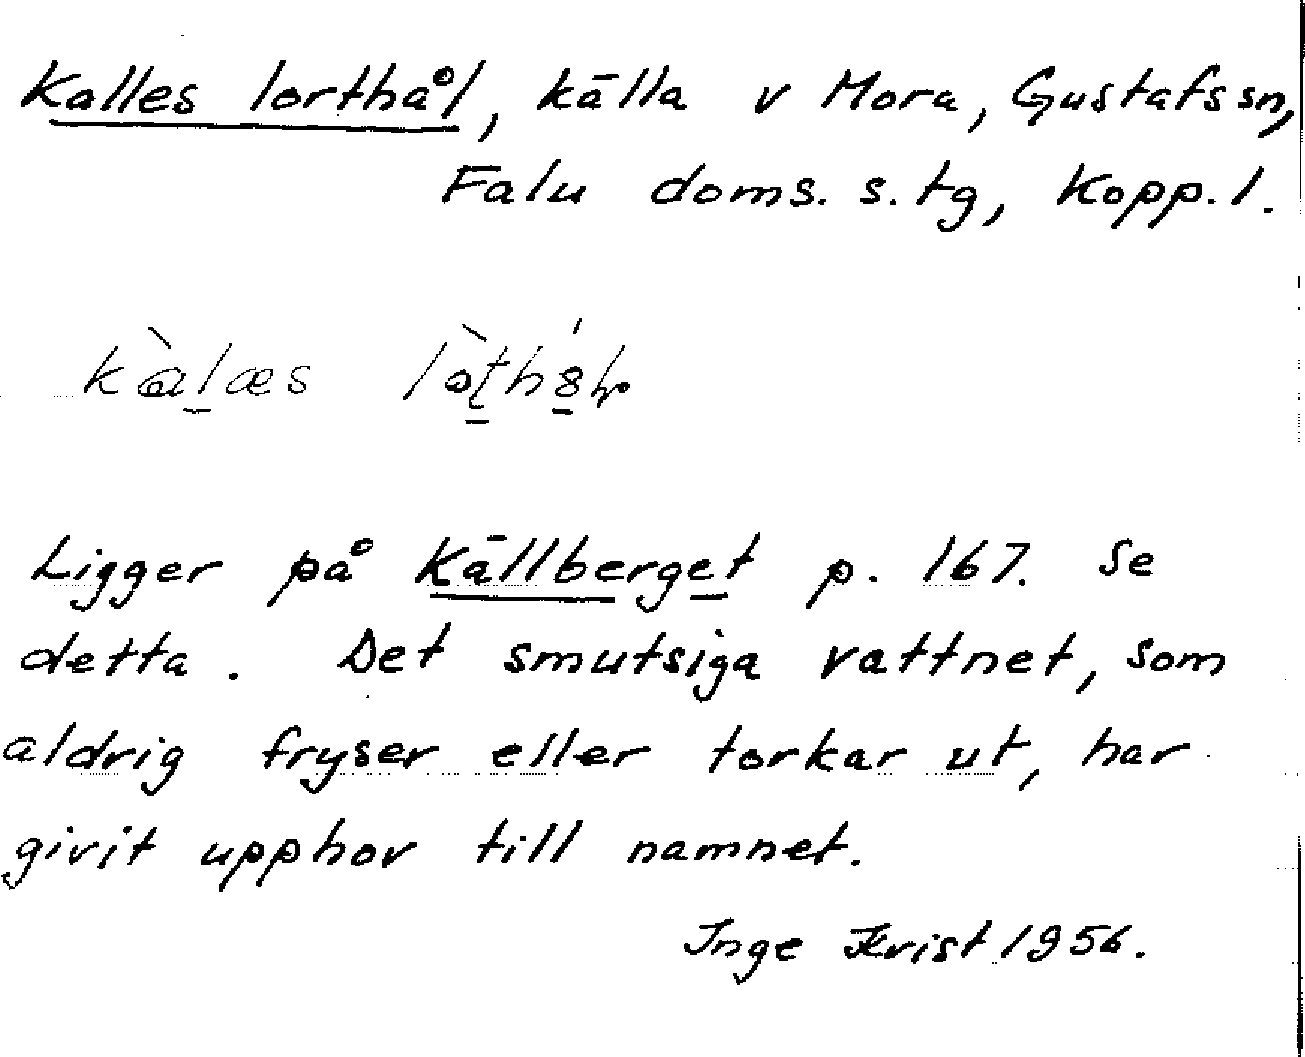 Kalles lorthål, källa v Mora, Gustafs sn,
Falu doms. s. tg, Kopp. l.
Ligger på Källberget p. 167. Se
detta. Det smutsiga vattnet, som
aldrig fryser eller torkar ut, har
givit upphov till namnet.
Inge Krist 1956.